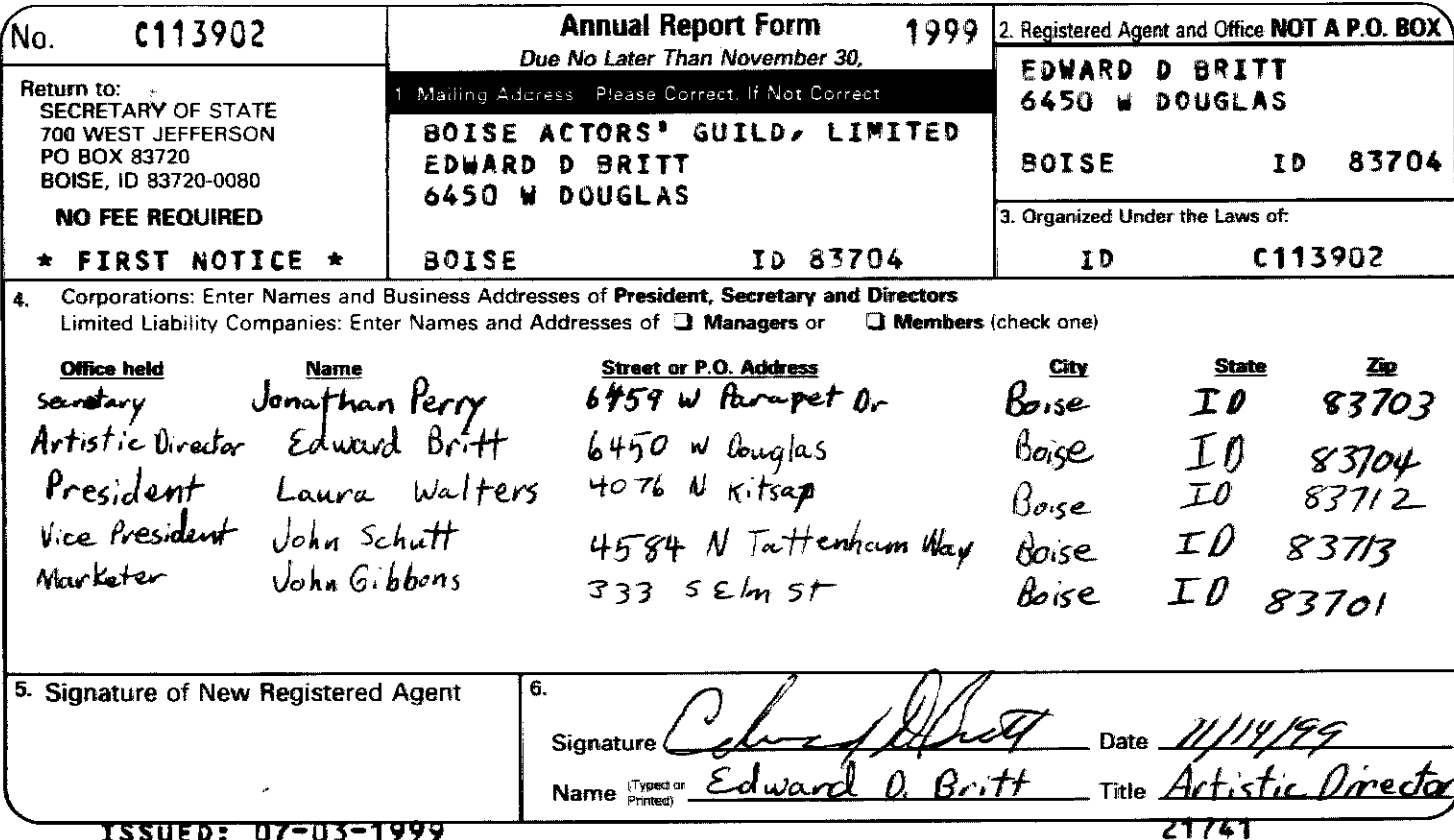 No. C113902
Annual Report Form 1999
Due No Later Than November 30,
Return to:
SECRETARY OF STATE
700 WEST JEFFERSON
PO BOX 83720
BOISE, ID 83720-0080
NO FEE REQUIRED
* FIRST NOTICE *
1 Mailing Address Please Correct, If Not Correct
BOISE ACTORS' GUILD, LIMITED
EDWARD D BRITT
6450 W DOUGLAS
BOISE ID 83704
2. Registered Agent and Office NOT A P.O. BOX
EDWARD D BRITT
6450 W DOUGLAS
BOISE ID 83704
3. Organized Under the Laws of:
ID C113902
4. Corporations: Enter Names and Business Addresses of President, Secretary and Directors
Limited Liability Companies: Enter Names and Addresses of ❑ Managers or ❑ Members (check one)
Office held Name Street or P.O. Address City State Zip
Secretary Jonathan Perry 6459 W Parapet Dr Boise ID 83703
Artistic Director Edward Britt 6450 W Douglas Boise ID 83704
President Laura Walters 4076 N Kitsap Boise ID 83712
Vice President John Schutt 4584 N Tattenham Way Boise ID 83713
Marketer John Gibbons 333 S Elm St Boise ID 83701
5. Signature of New Registered Agent
6.
Signature Edward D Britt Date 11/14/99
Name (Typed or Printed) Edward D. Britt Title Artistic Director
ISSUED: 07-03-1999 21741